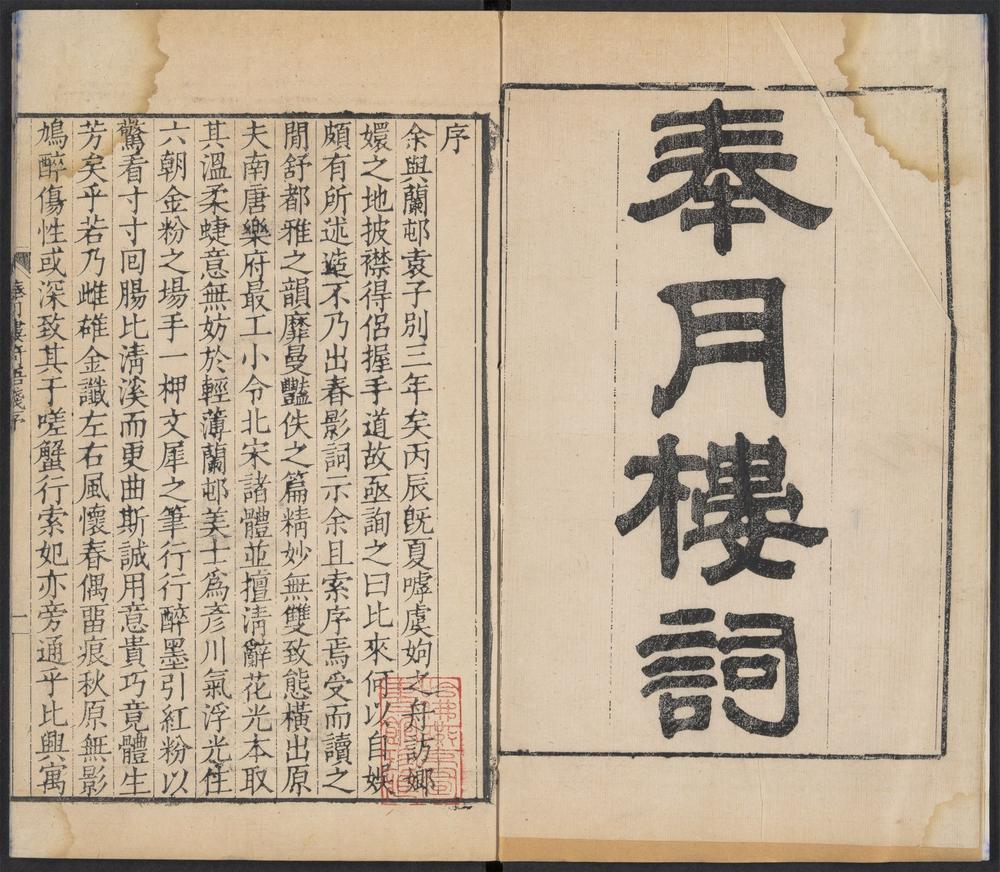 奉月樓詞
序
余與蘭邨袁子別三年矣丙辰旣夏嘘虞姁之舟訪嫏
嬛之地披襟得侶握手道故亟詢之曰比來何以自娛
頗有所述造不乃出春影詞示余且索序焉受而讀之
閒舒都雅之韻靡曼豔佚之篇精妙無雙致態橫出原
夫南唐樂府最工小令北宋諸體並擅淸辭花光本取
其溫柔蜨意無妨於輕薄蘭邨美士爲彥川氣浮光住
六朝金粉之場手一柙文犀之筆行行醉墨引紅粉以
驚看寸寸回腸比淸溪而更曲斯誠用意貴巧竟體生
芳矣乎若乃雌碓金讖左右風懷春偶畱痕秋原無影
鳩醉傷性或深致其于嗟蟹行索妃亦旁通乎比興寓
序
一